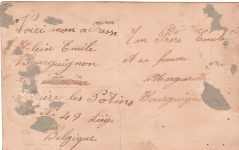 Voici mon adresse
Klein Emile
Bourguignon
Rue
les Potiers
N. 49 Liège
Belgique
Ton Père Emile
et sa femme
Marguerite
Bourguignon